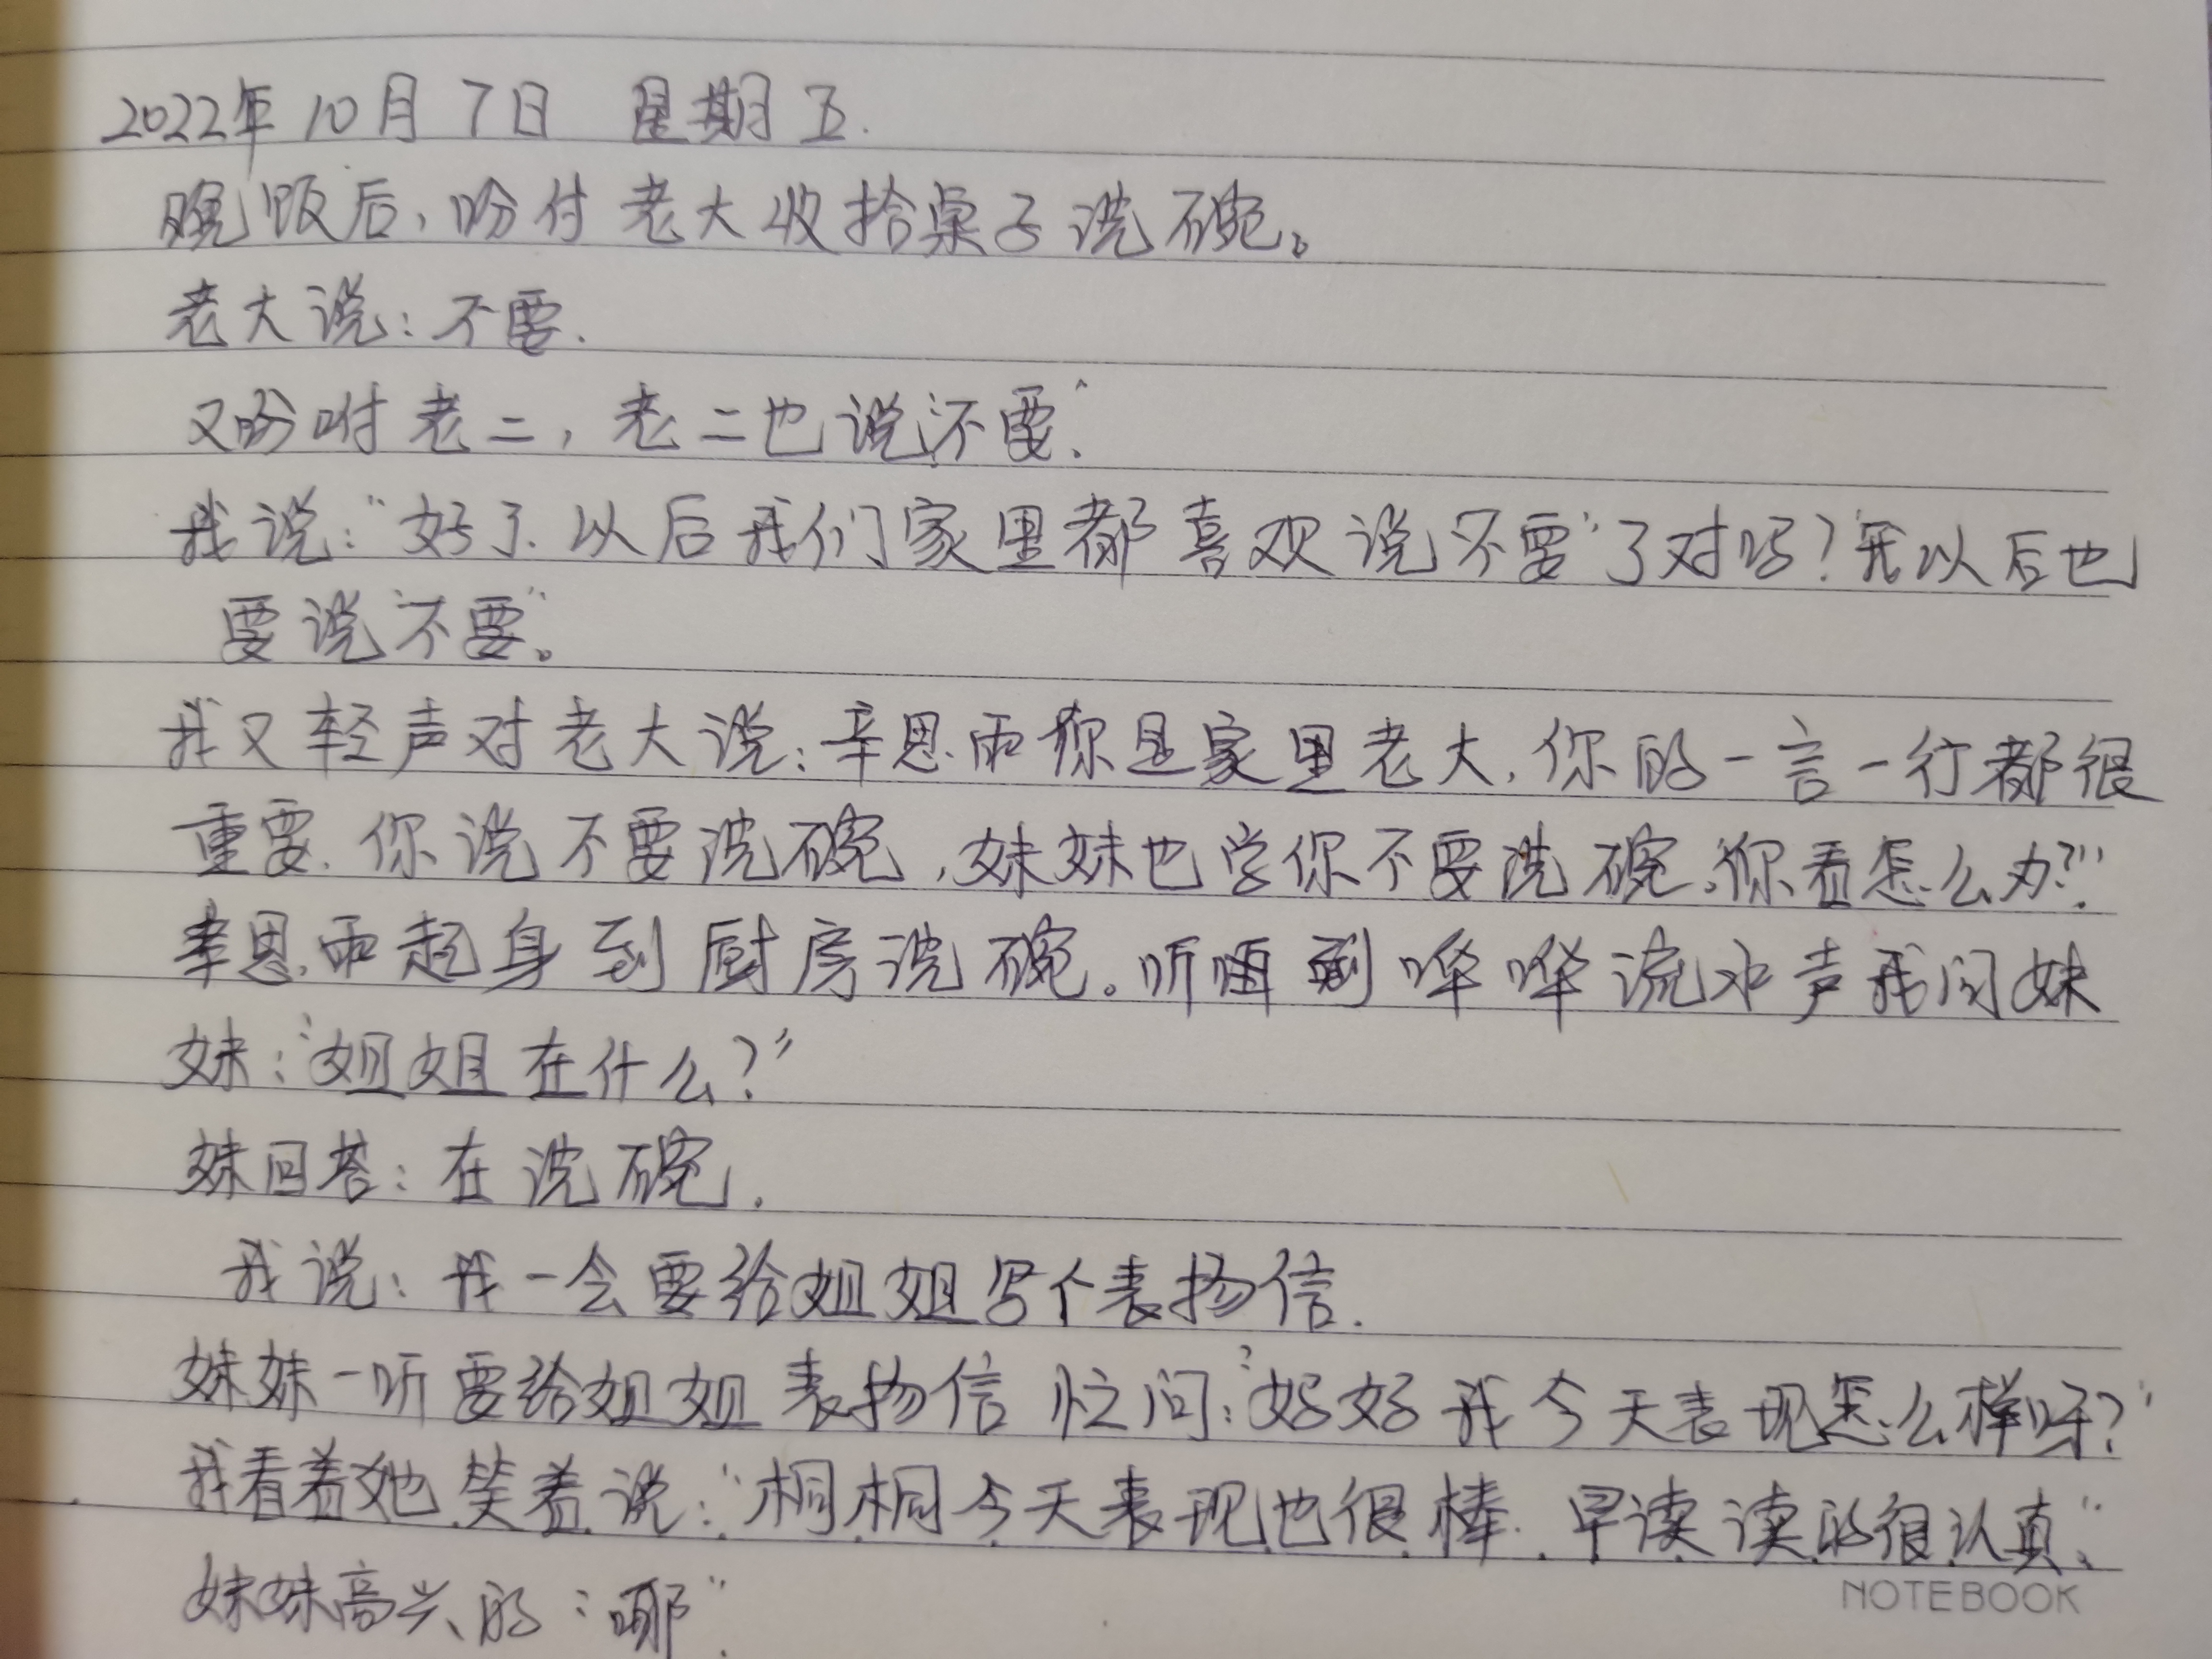 2022年10月7日 星期五.
晚饭后，吩付老大收拾桌子洗碗。
老大说：不要.
又吩咐老二，老二也说“不要”.
我说：“好了.以后我们家里都喜欢说“不要”了对吗？我以后也
要说“不要”。
我又轻声对老大说：辛思雨你是家里老大，你的一言一行都很
重要.你说不要洗碗，妹妹也学你不要洗碗，你看怎么办？”
辛思雨起身到厨房洗碗。听到哗哗流水声我问妹
妹：“姐姐在什么？”
妹回答：在洗碗.
我说：我一会要给姐姐写个表扬信.
妹妹一听要给姐姐表扬信 忙问：“好好我今天表现怎么样呀？”
我看着她笑着说：“桐桐今天表现也很棒.早读读的很认真”.
妹妹高兴的：“哪”.
NOTEBOOK